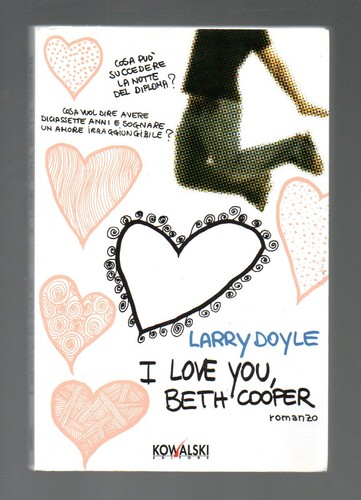 COSA PUÒ
SUCCEDERE
LA NOTTE
DEL DIPLOMA?
COSA VUOL DIRE AVERE
DICIASSETTE ANNI E SOGNARE
UN AMORE IRRAGGIUNGIBILE?
LARRY DOYLE
I LOVE YOU,
BETH COOPER
romanzo
KOWALSKI
EDITORE